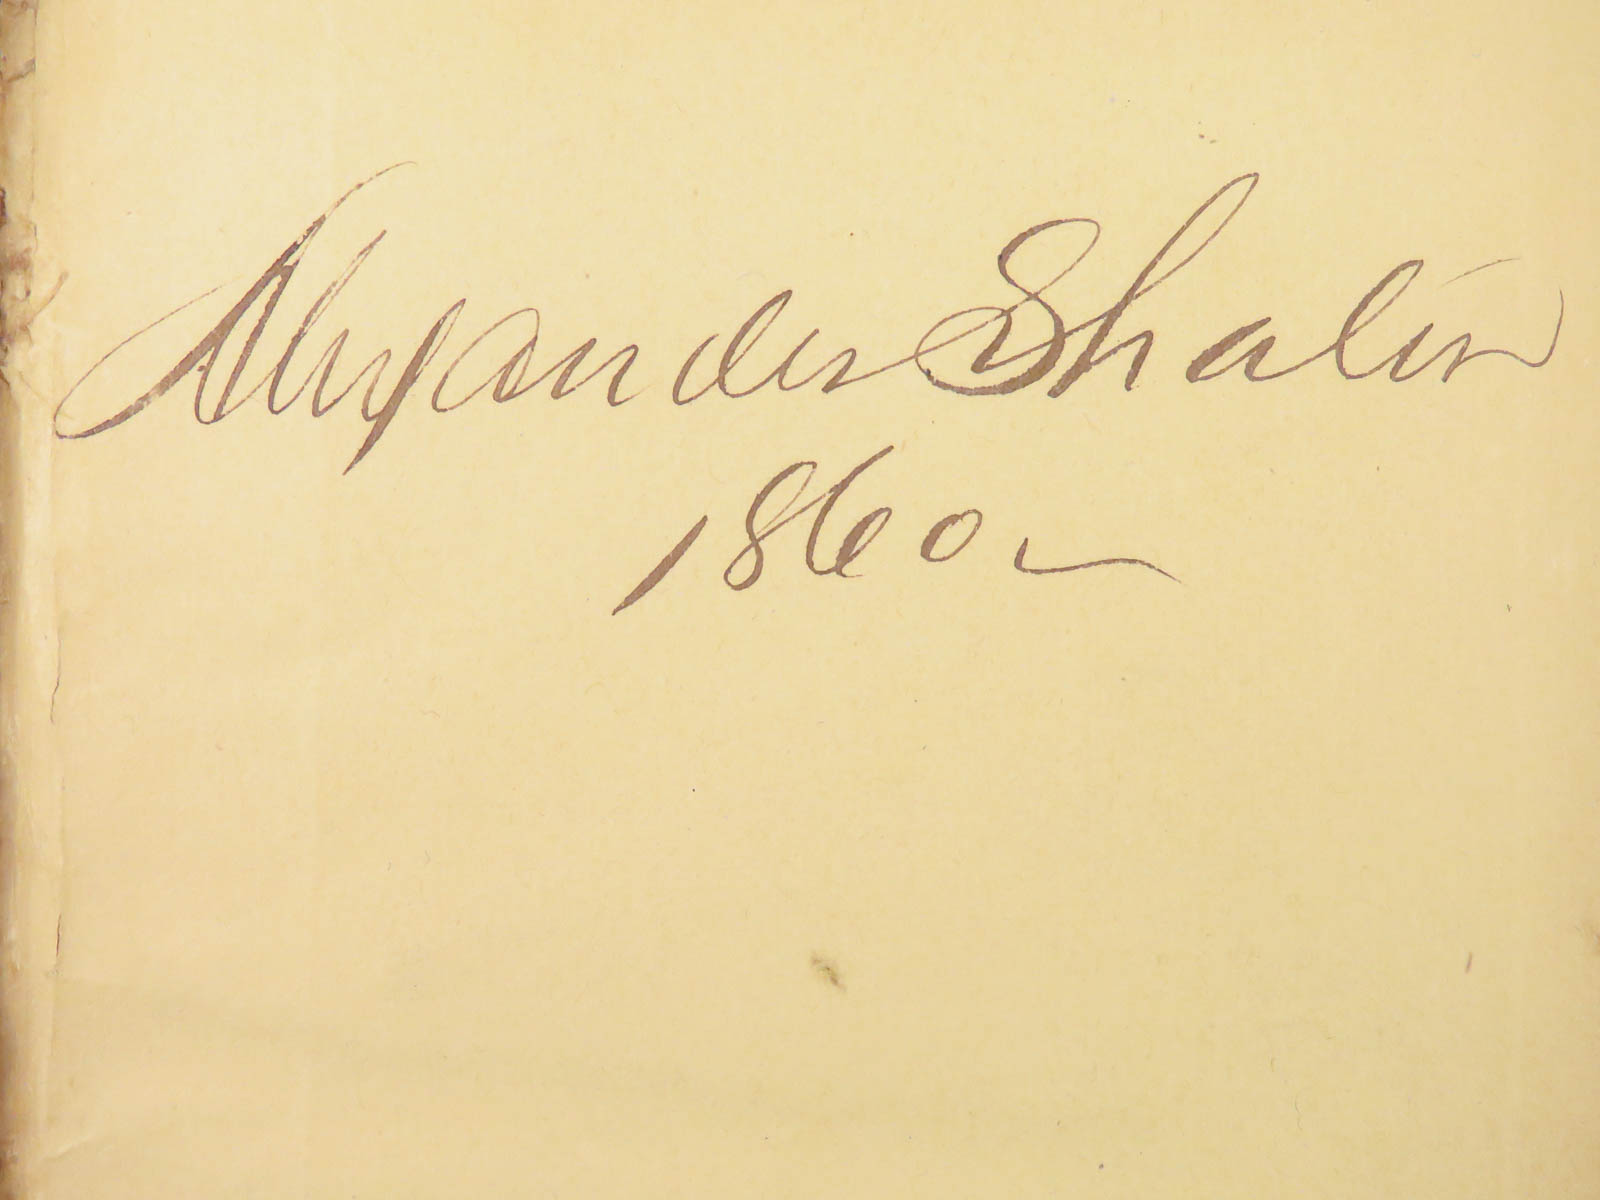 Alexander Shaler
1860